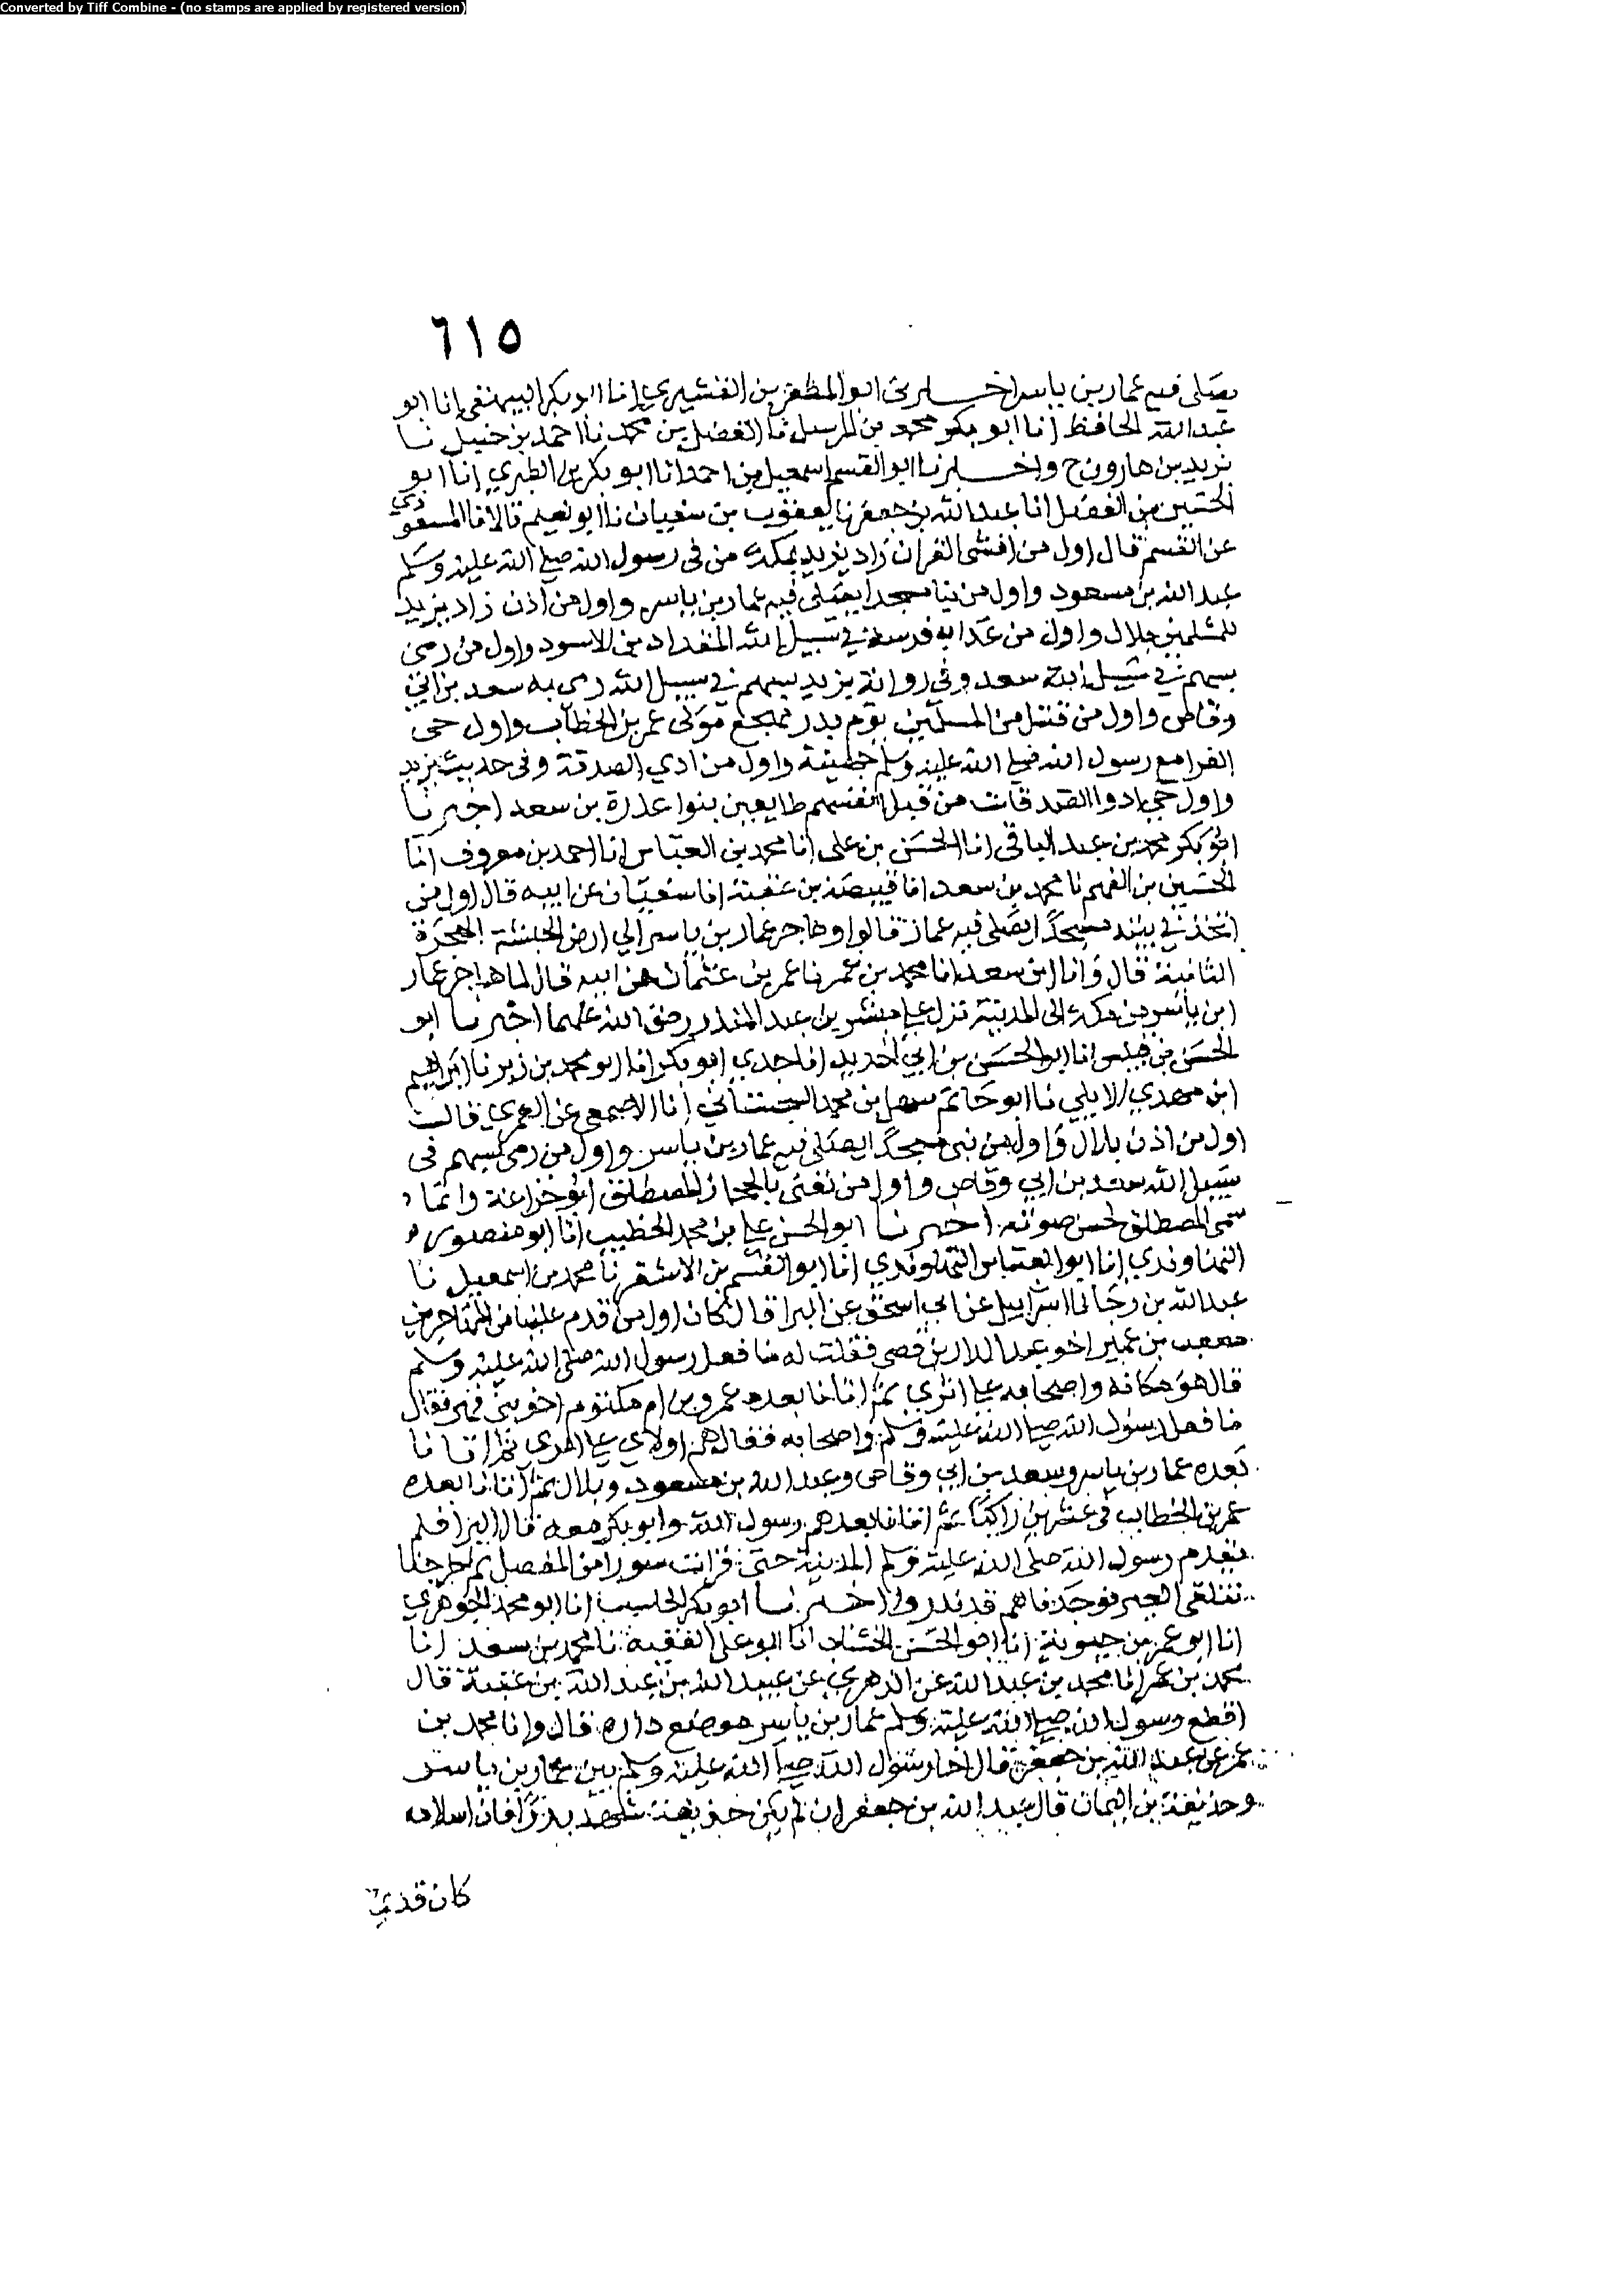 Converted by Tiff Combine - (no stamps are applied by registered version)
٦١٥
يصلى فيه عمار بن ياسر اخبرنا ابو المظفر بن القشيري انا ابو بكر البيهقي انا ابو
عبد الله الحافظ انا ابو بكر محمد بن المرسل نا الفضل بن محمد نا احمد بن حنبل نا
يزيد بن هارون ح واخبرنا ابو القسم اسمعيل بن احمد انا ابو بكر بن الطبري انا ابو
الحسين بن الفضل انا عبد الله بن جعفر نا يعقوب بن سفيان نا ابو نعيم قالا نا المسعودي
عن القسم قال اول من افشى القران زاد يزيد بمكة من في رسول الله صلى الله عليه وسلم
عبد الله بن مسعود واول من بنا مسجدا يصلى فيه عمار بن ياسر واول من اذن زاد يزيد
للمسلمين بلال واول من عدا به فرسه في سبيل الله المقداد بن الاسود واول من رمى
بسهم في سبيل الله سعد وفي رواية يزيد بسهم في سبيل الله رمى به سعد بن ابي
وقاص واول من قتل من المسلمين يوم بدر مهجع مولى عمر بن الخطاب واول حى
الفوا مع رسول الله صلى الله عليه وسلم جهينة واول من ادي الصدقة وفى حديث يزيد
واول حي ادوا الصدقات من قبل انفسهم طايعين بنوا عذرة بن سعد اخبرنا
ابو بكر محمد بن عبد الباقي انا الحسن بن على انا محمد بن العباس انا احمد بن معروف انا
الحسين بن الفهم نا محمد بن سعد انا قبيصة بن عقبة انا سفيان عن ابيه قال اول من
اتخذ في بيته مسجدا يصلى فيه عمار قالوا وهاجر عمار بن ياسر الي ارض الحبشة الهجرة
الثانية قال وانا ابن سعد انا محمد بن عمر نا عمر بن عثمان عن ابيه قال لما هاجر عمار
ابن ياسر من مكة الى المدينة نزل على مبشر بن عبد المنذر رضى الله عنهما اخبرنا ابو
الحسن بن قبيس انا ابو الحسن بن ابي الحديد انا جدي ابو بكر انا ابو محمد بن زبر نا ابراهيم
ابن مهدي الابلي نا ابو حاتم سهل بن محمد السجستاني انا الاصمعي عن العمري قالت
اول من اذن بلال واول من بنى مسجدا يصلى فيه عمار بن ياسر واول من رمى بسهم فى
سبيل الله سعد بن ابي وقاص واول من تغنى بالحجاز المصطلق ابو خزاعة وانما
سمى المصطلق لحسن صوته اخبرنا ابو الحسن على بن محمد الخطيب انا ابو منصور
النهاوندي انا ابو العباس النهاوندي انا ابو القسم بن الاشقر نا محمد بن اسمعيل نا
عبد الله بن رجا نا اسراييل عن ابي اسحق عن البرا قال كان اول من قدم علينا من المهاجرين
مصعب بن عمير اخو عبد الدار بن قصي فقلت له ما فعل رسول الله صلى الله عليه وسلم
قال هو مكانه واصحابه على اثري ثم اتانا بعده عمرو بن ام مكتوم اخو بني فهر فقال
ما فعل رسول الله صلى الله عليه وسلم واصحابه فقال هم اولاي على اثري ثم اتانا
بعده عمار بن ياسر وسعد بن ابي وقاص وعبد الله بن مسعود وبلال ثم اتانا بعده
عمر بن الخطاب في عشرين راكبا ثم اتانا بعدهم رسول الله وابو بكر معه قال البرا فلم
يقدم رسول الله صلى الله عليه وسلم المدينة حتى قرات سورا من المفصل ثم خرجنا
نتلقى العير فوجدناهم قد نذروا اخبرنا ابو بكر الحاسب انا ابو محمد الجوهري
انا ابو عمر بن حيوية انا ابو الحسن الخشاب انا ابو على الفقيه نا محمد بن سعد انا
محمد بن عمر انا محمد بن عبد الله عن الزهري عن عبيد الله بن عبد الله بن عتبة قال
اقطع رسول الله صلى الله عليه وسلم عمار بن ياسر موضع داره قال وانا محمد بن
عمر عن عبد الله بن جعفر قال اخا رسول الله صلى الله عليه وسلم بين عمار بن ياسر
وحذيفة بن اليمان قال عبد الله بن جعفر ان لم يكن حذيفة شهد بدرا فان اسلامه
كان قديما